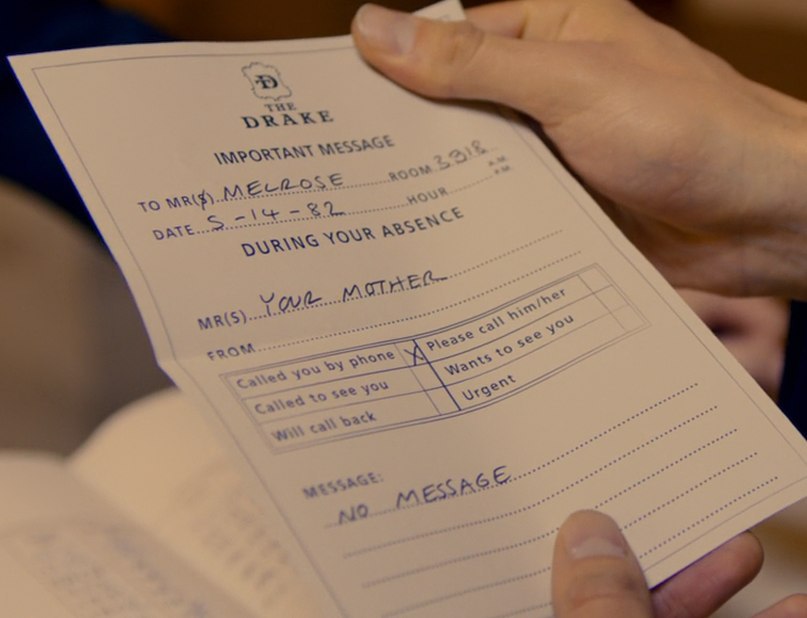 D
THE
DRAKE
IMPORTANT MESSAGE
TO MR(S) MELROSE ROOM 3318
DATE 5-14-82 HOUR A.M.
P.M.
DURING YOUR ABSENCE
MR(S) YOUR MOTHER
FROM
Called you by phone X Please call him/her
Called to see you Wants to see you
Will call back Urgent
MESSAGE:
NO MESSAGE